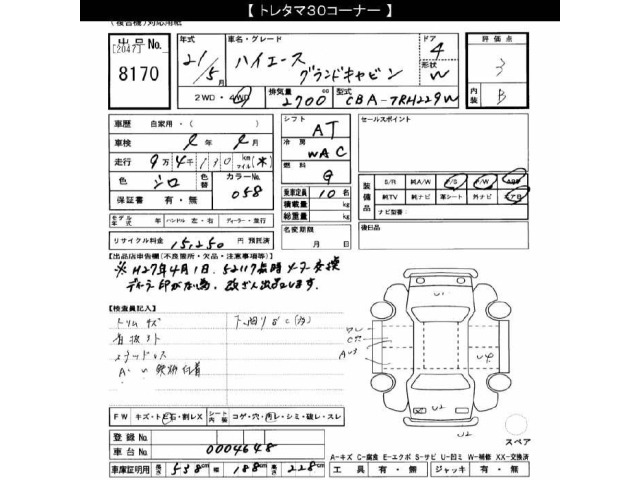 【 トレタマ30コーナー 】
出品No.
[2047]
8170
年式
21/5月
車名・グレード
ハイエース
グランドキャビン
ドア
4
形状
W
評価点
3
内装
B
2WD・4WD
排気量
2700
cc
型式
CBA-TRH229W
車歴
自家用・( )
車検
年
月
走行
9万4千110
km
マイル
(
)
色
シロ
色替
カラーNo.
058
保証書
有・無
モデル年式
年
ハンドル
左・右
ディーラー・並行
リサイクル料金
15,250
円
預託済
シフト
AT
冷房
WAC
燃料
G
乗車定員
10
名
積載量
kg
総重量
kg
名変期限
月
日
セールスポイント
装備品
S/R
純A/W
P/S
P/W
ABS
純TV
純ナビ
革シート
外ナビ
エアB
ナビ型番
後日品
【出品店申告欄(不良箇所・欠品・注意事項等)】
※H27年4月1日、52117km時メーター交換
ディーラー印がない為、改ざん出品でします。
【検査員記入】
トリムキズ
下廻りサビ(力)
FW
キズ・トビ石・割レX
シート内装
コゲ・穴・切レ・シミ・破レ・スレ
登録No.
車台No.
0004648
車庫証明用
長さ
538
cm
幅
188
cm
高さ
228
cm
U1
U4
U2
U2
スペア
A-キズ C-腐蝕 E-エクボ S-サビ U-凹ミ W-補修 XX-交換済
工具
有・無
ジャッキ
有・無